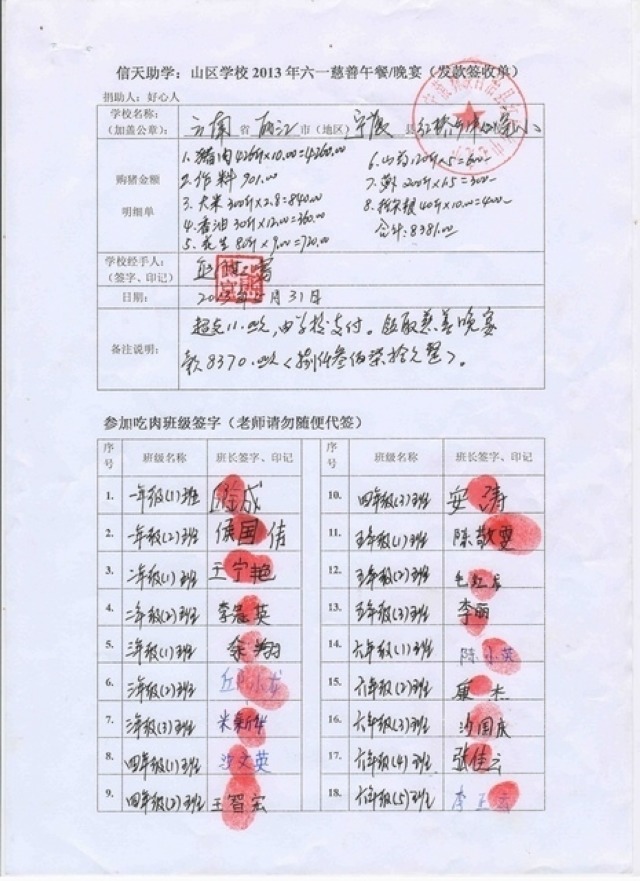 信天助学：山区学校2013年六一慈善午餐/晚宴（发款签收单）
捐助人：好心人
学校名称：
（加盖公章）：
云南 省 丽江 市（地区） 宁蒗 县
购猪金额
明细单
1.猪肉426斤×10.00=4260.00
2.作料 901.00
3.大米300斤×2.8=840.00
4.香油30斤×12.00=360.00
5.花生80斤×9.00=720.00
6.山药120斤×5=600
7. 200斤×1.5=300
8. 40斤×10.00=400
合计:8381.00
学校经手人：
（签字、印记）
日期：
2013年5月31日
备注说明：
超支11.00元,由学校支付。领取慈善晚宴
款8370.00元<捌仟叁佰柒拾元整>。
参加吃肉班级签字（老师请勿随便代签）
序号 班级名称 班长签字、印记 序号 班级名称 班长签字、印记
1. 一年级(1)班 成
2. 一年级(2)班 侯国倩
3. 二年级(1)班 王宁艳
4. 二年级(2)班 李冕英
5. 三年级(1)班 余翔
6. 三年级(2)班
7. 三年级(3)班 米新华
8. 四年级(1)班 沙文英
9. 四年级(2)班 王智宏
10. 四年级(3)班 安涛
11. 五年级(1)班 陈敬雯
12. 五年级(2)班
13. 五年级(3)班 李丽
14. 六年级(1)班 陈小英
15. 六年级(2)班 康杰
16. 六年级(3)班 沙国庆
17. 六年级(4)班 张佳云
18. 六年级(5)班 李正云